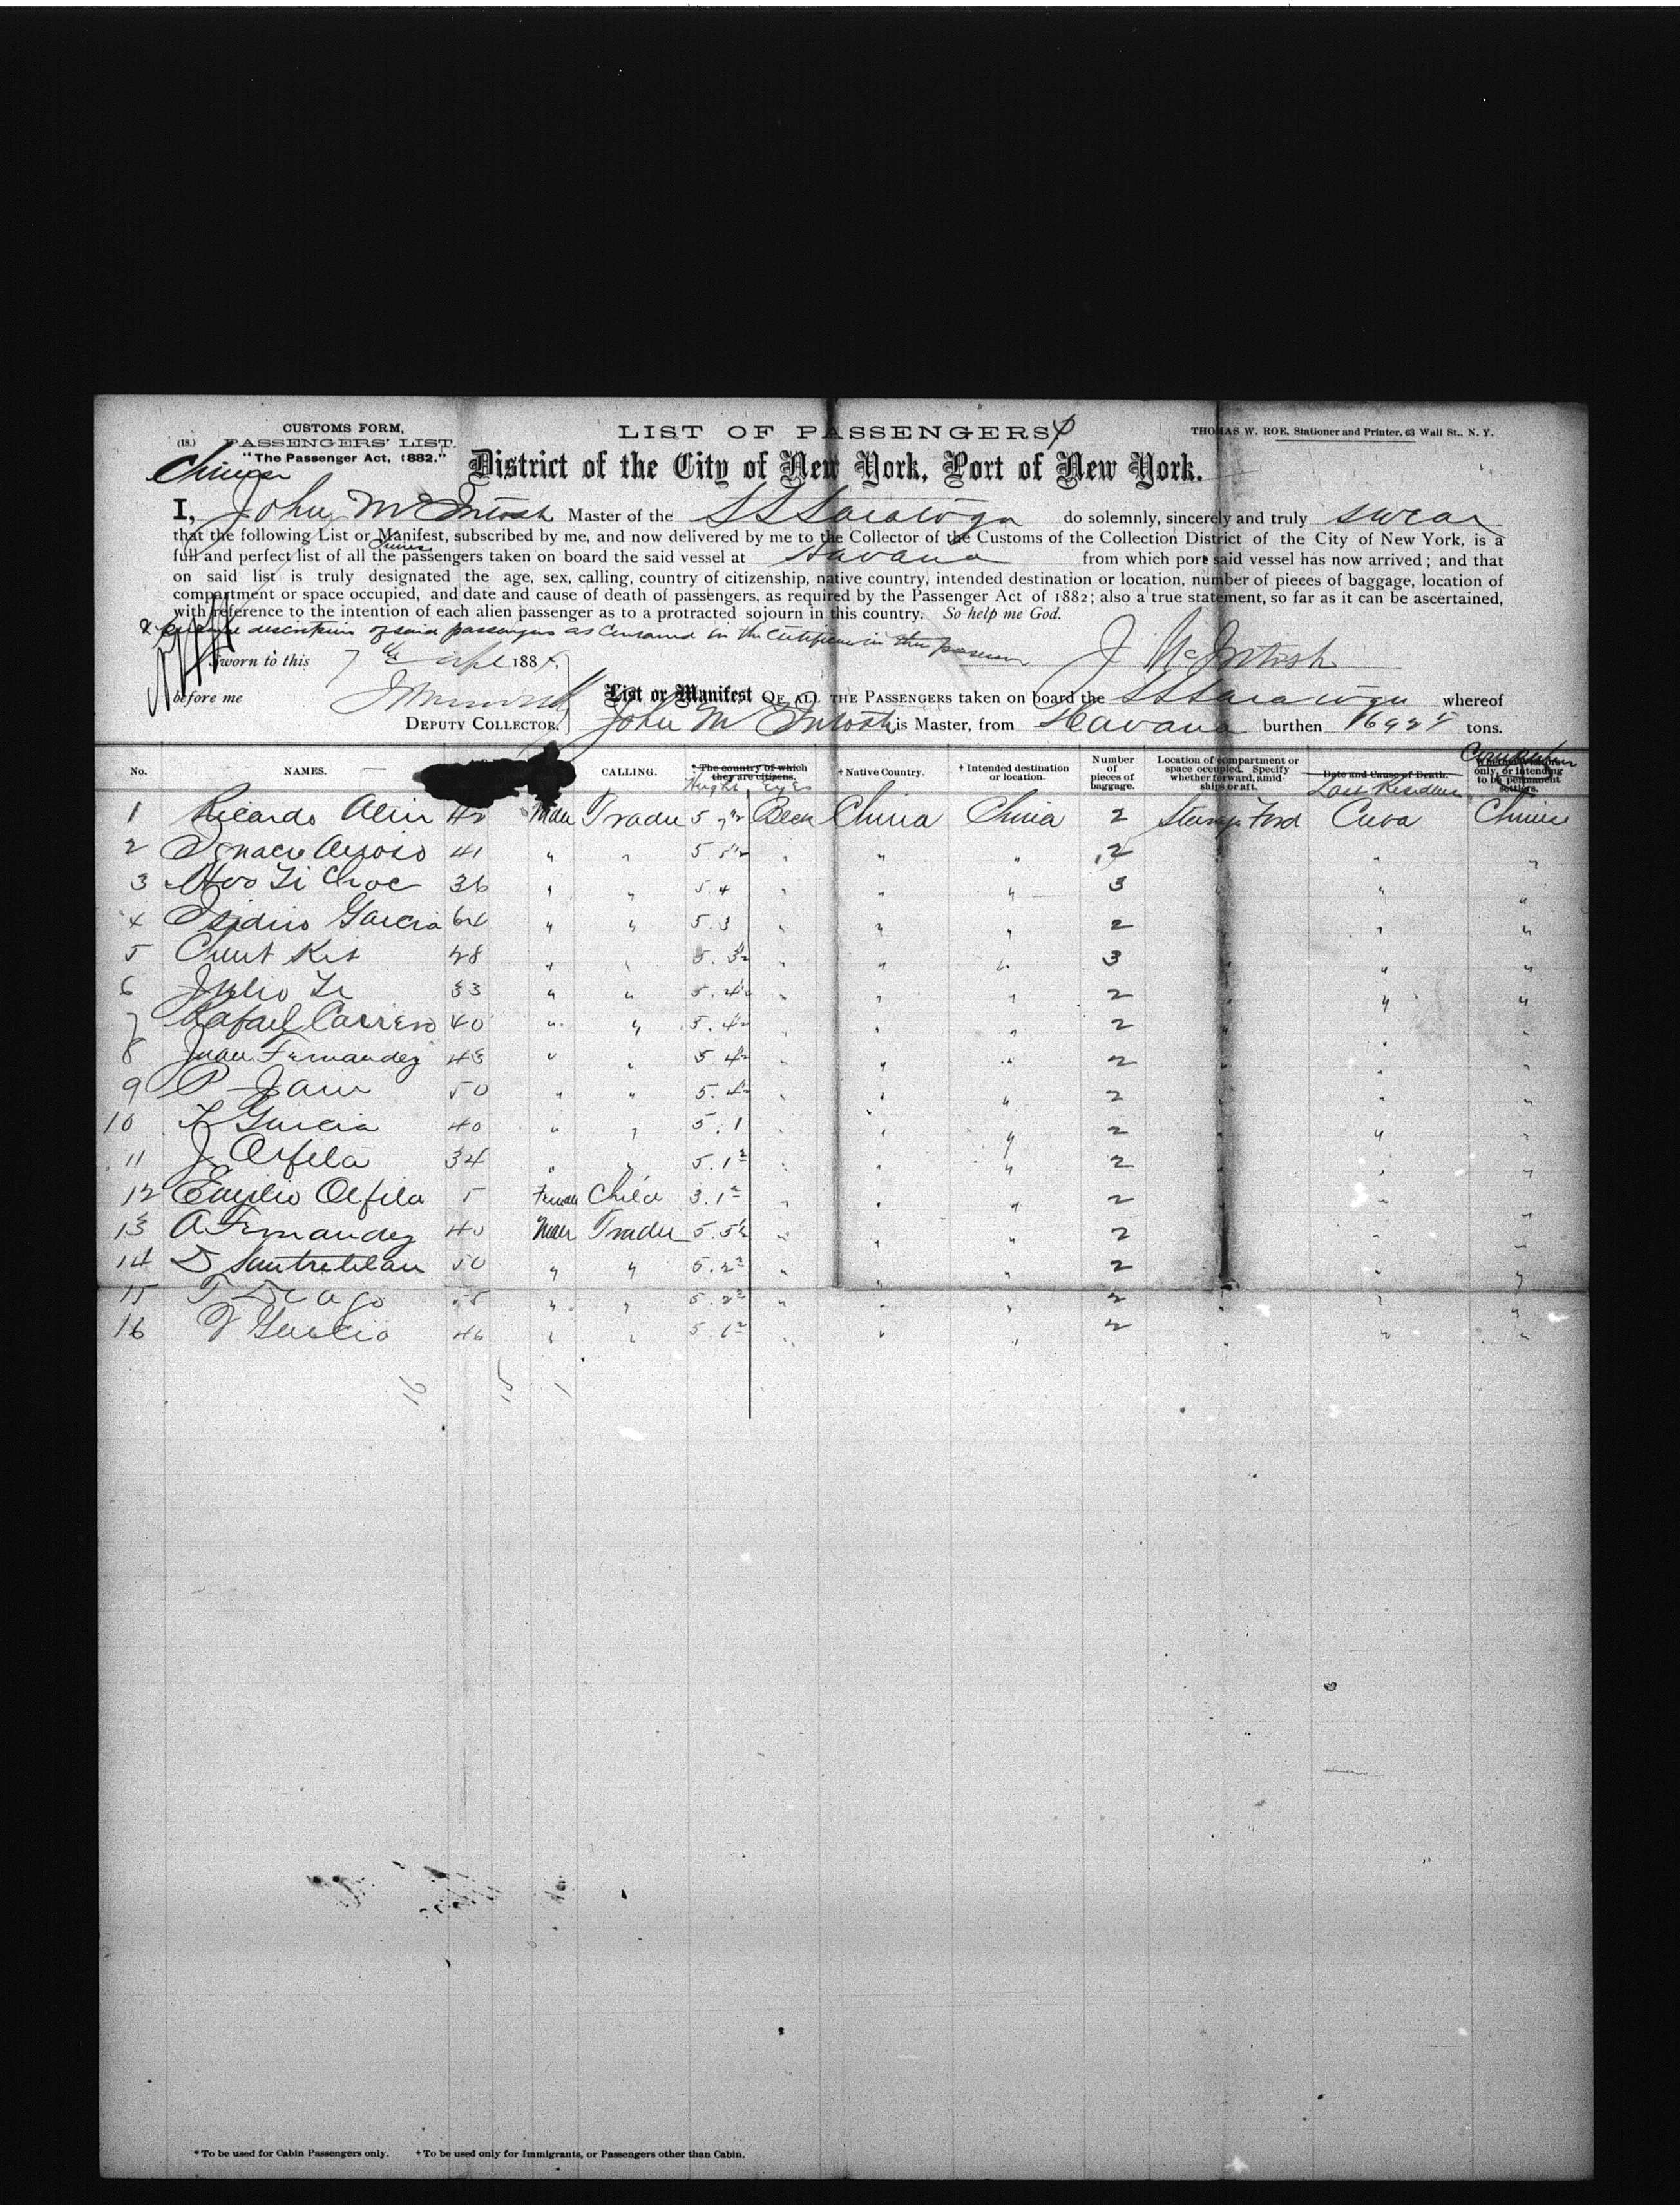 CUSTOMS FORM,
(18.) PASSENGERS' LIST.
"The Passenger Act, 1882."
Chinese
LIST OF PASSENGERS
THOMAS W. ROE, Stationer and Printer, 63 Wall St., N. Y.
District of the City of New York, Port of New York.
I, John McIntosh Master of the SS Saratoga do solemnly, sincerely and truly swear
that the following List or Manifest, subscribed by me, and now delivered by me to the Collector of the Customs of the Collection District of the City of New York, is a
full and perfect list of all the passengers taken on board the said vessel at Havana from which port said vessel has now arrived; and that
on said list is truly designated the age, sex, calling, country of citizenship, native country, intended destination or location, number of pieces of baggage, location of
compartment or space occupied, and date and cause of death of passengers, as required by the Passenger Act of 1882; also a true statement, so far as it can be ascertained,
with reference to the intention of each alien passenger as to a protracted sojourn in this country. So help me God.
description of said passengers as contained in the Certificate in their possession
J McIntosh
Sworn to this 7th 188
before me
DEPUTY COLLECTOR.
List or Manifest OF ALL THE PASSENGERS taken on board the SS Saratoga whereof
John McIntosh is Master, from Havana burthen tons.
No. NAMES. CALLING. * The country of which they are citizens. Height Eyes † Native Country. † Intended destination or location. Number of pieces of baggage. Location of compartment or space occupied. Specify whether forward, amidships or aft. Date and Cause of Death. Last Residence only, or intending to be permanent settlers.
1 Ricardo 42 Male Trader 5 Black China China 2 Steerage Ford Cuba Chinese
2 Ignacio 41 " " 5.5½ " " " 2 " " "
3 36 " " 5.4 " " " 3 " " "
4 Isidro Garcia 64 " " 5.3 " " " 2 " " "
5 28 " " 5.3½ " " " 3 " " "
6 Julio 33 " " 5.4½ " " " 2 " " "
7 Rafael Carrero 40 " " 5.4½ " " " 2 " " "
8 Juan Fernandez 43 " " 5.4½ " " " 2 " " "
9 P 50 " " 5.4½ " " " 2 " " "
10 Garcia 40 " " 5.1 " " " 2 " " "
11 J Orfila 34 " " 5.1½ " " " 2 " " "
12 Emilio Orfila 5 Female Child 3.1½ " " " 2 " " "
13 A Fernandez 40 Male Trader 5.5½ " " " 2 " " "
14 50 " " 5.2½ " " " 2 " " "
15 55 " " 5.2½ " " " 2 " " "
16 Garcia 46 " " 5.1½ " " " 2 " " "
16 15 1
* To be used for Cabin Passengers only. † To be used only for Immigrants, or Passengers other than Cabin.